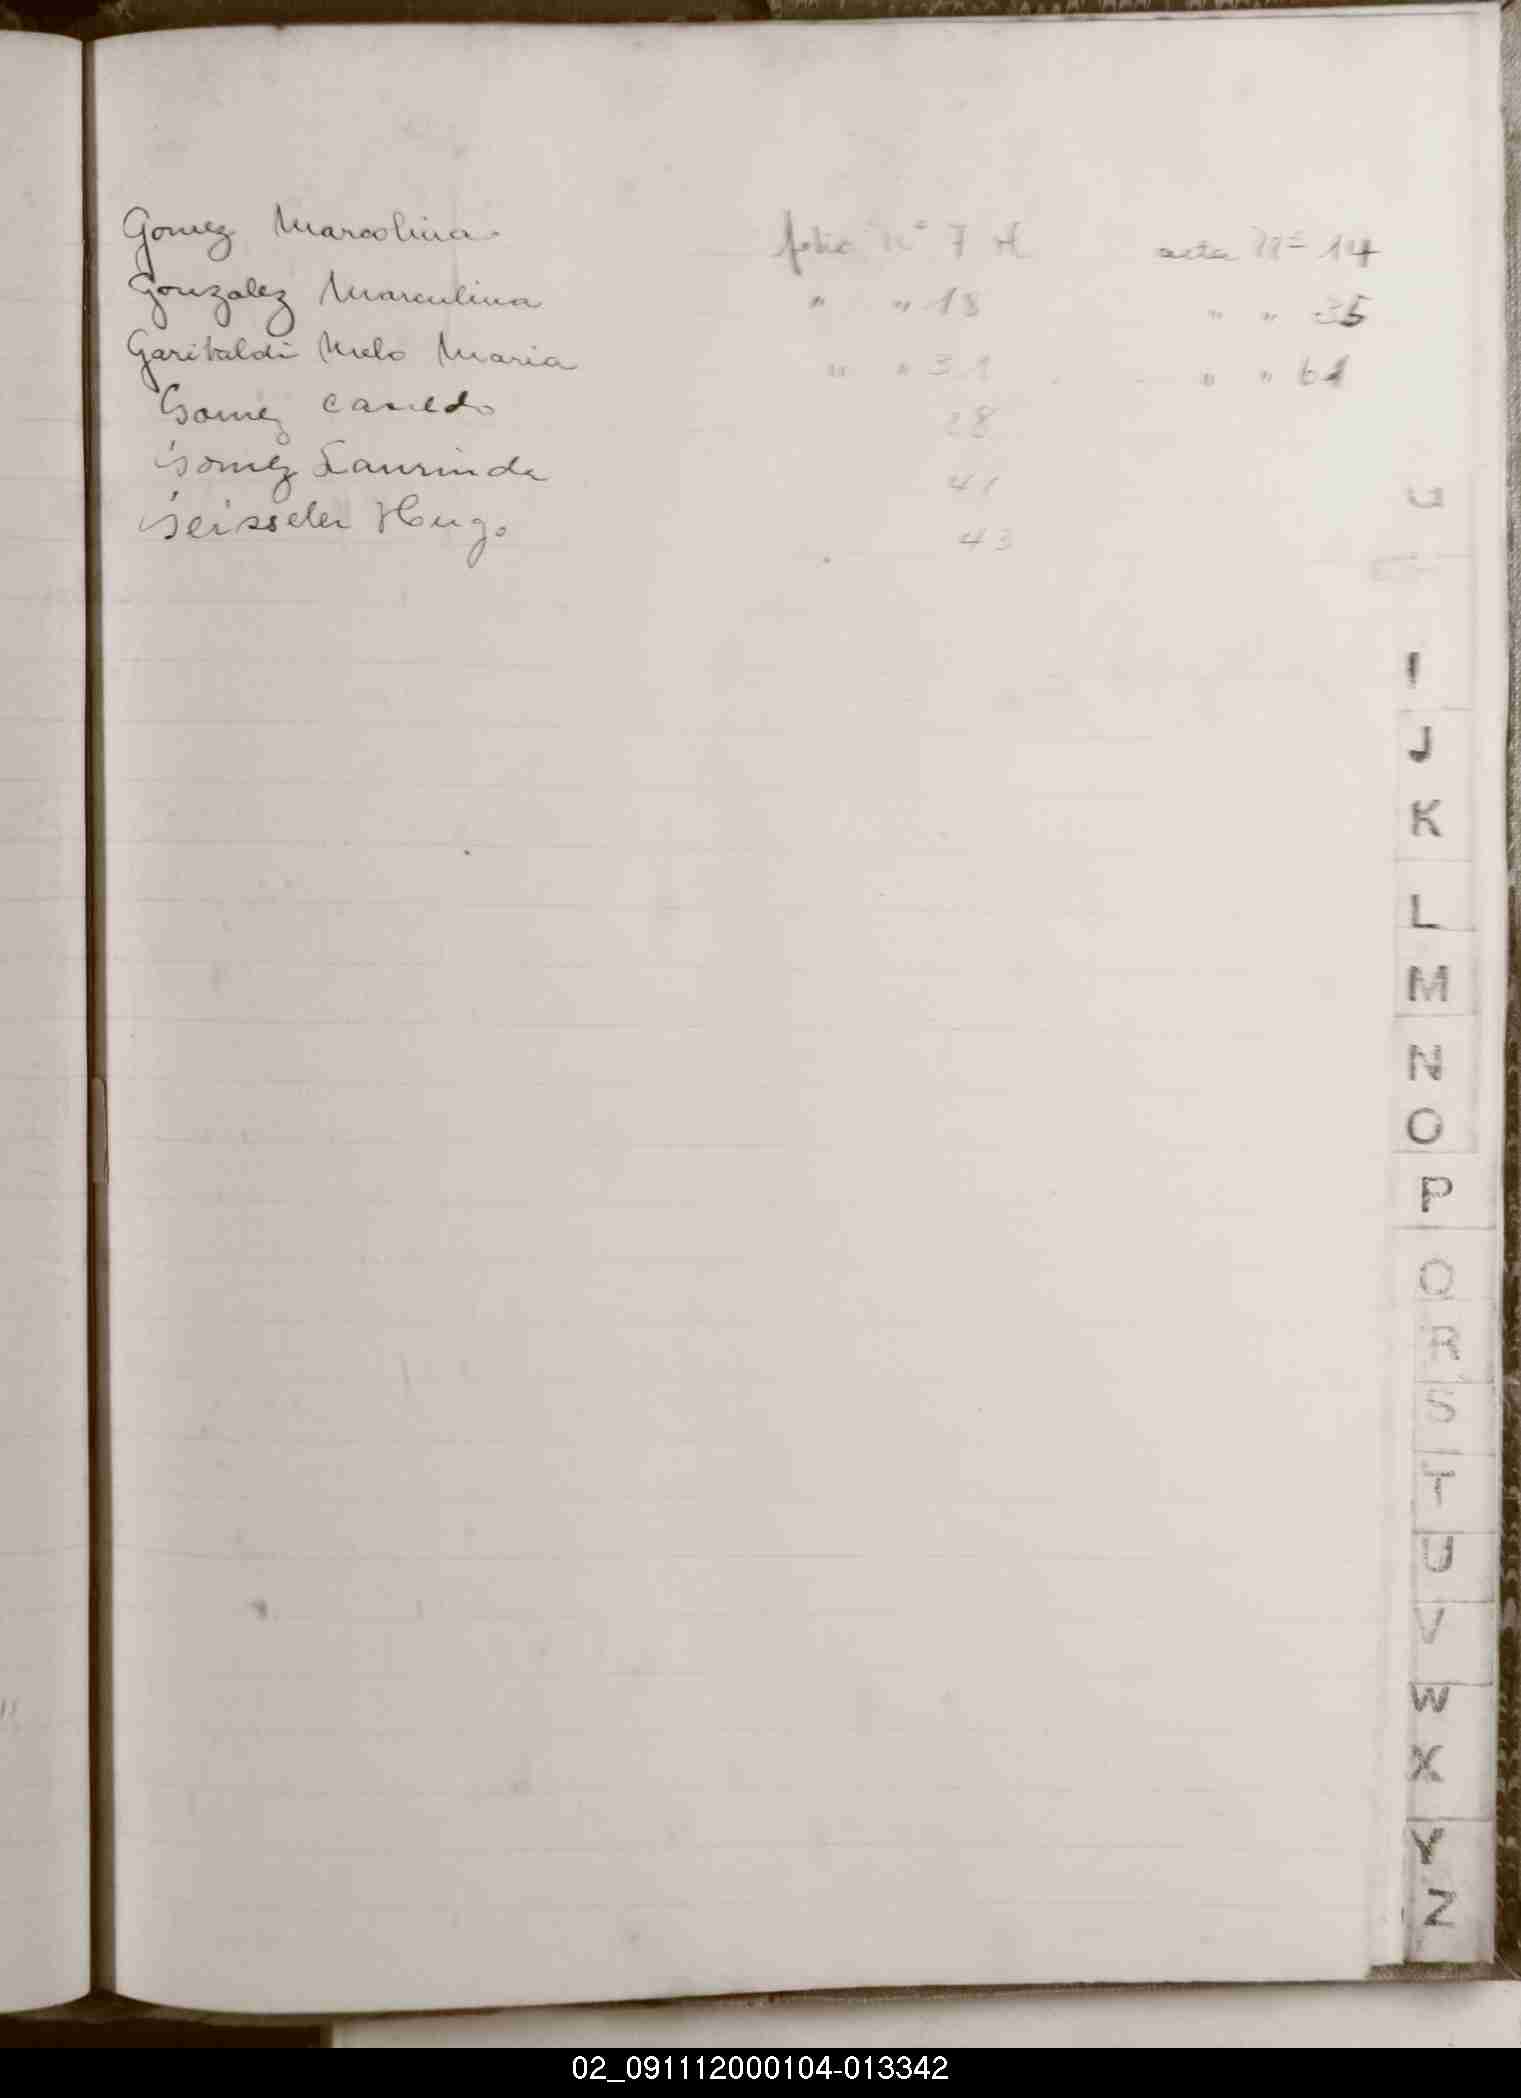 Gomez Marcolina folio Nº 7 acta Nº 14
Gonzalez Marculina " " 18 " " 35
Garibaldi Melo Maria " " 31 " " 61
Gomez 28
Gomez Laurinda 41
Geisseler Hugo 43
I
J
K
L
M
N
O
P
Q
R
S
T
U
V
W
X
Y
Z
02_091112000104-013342